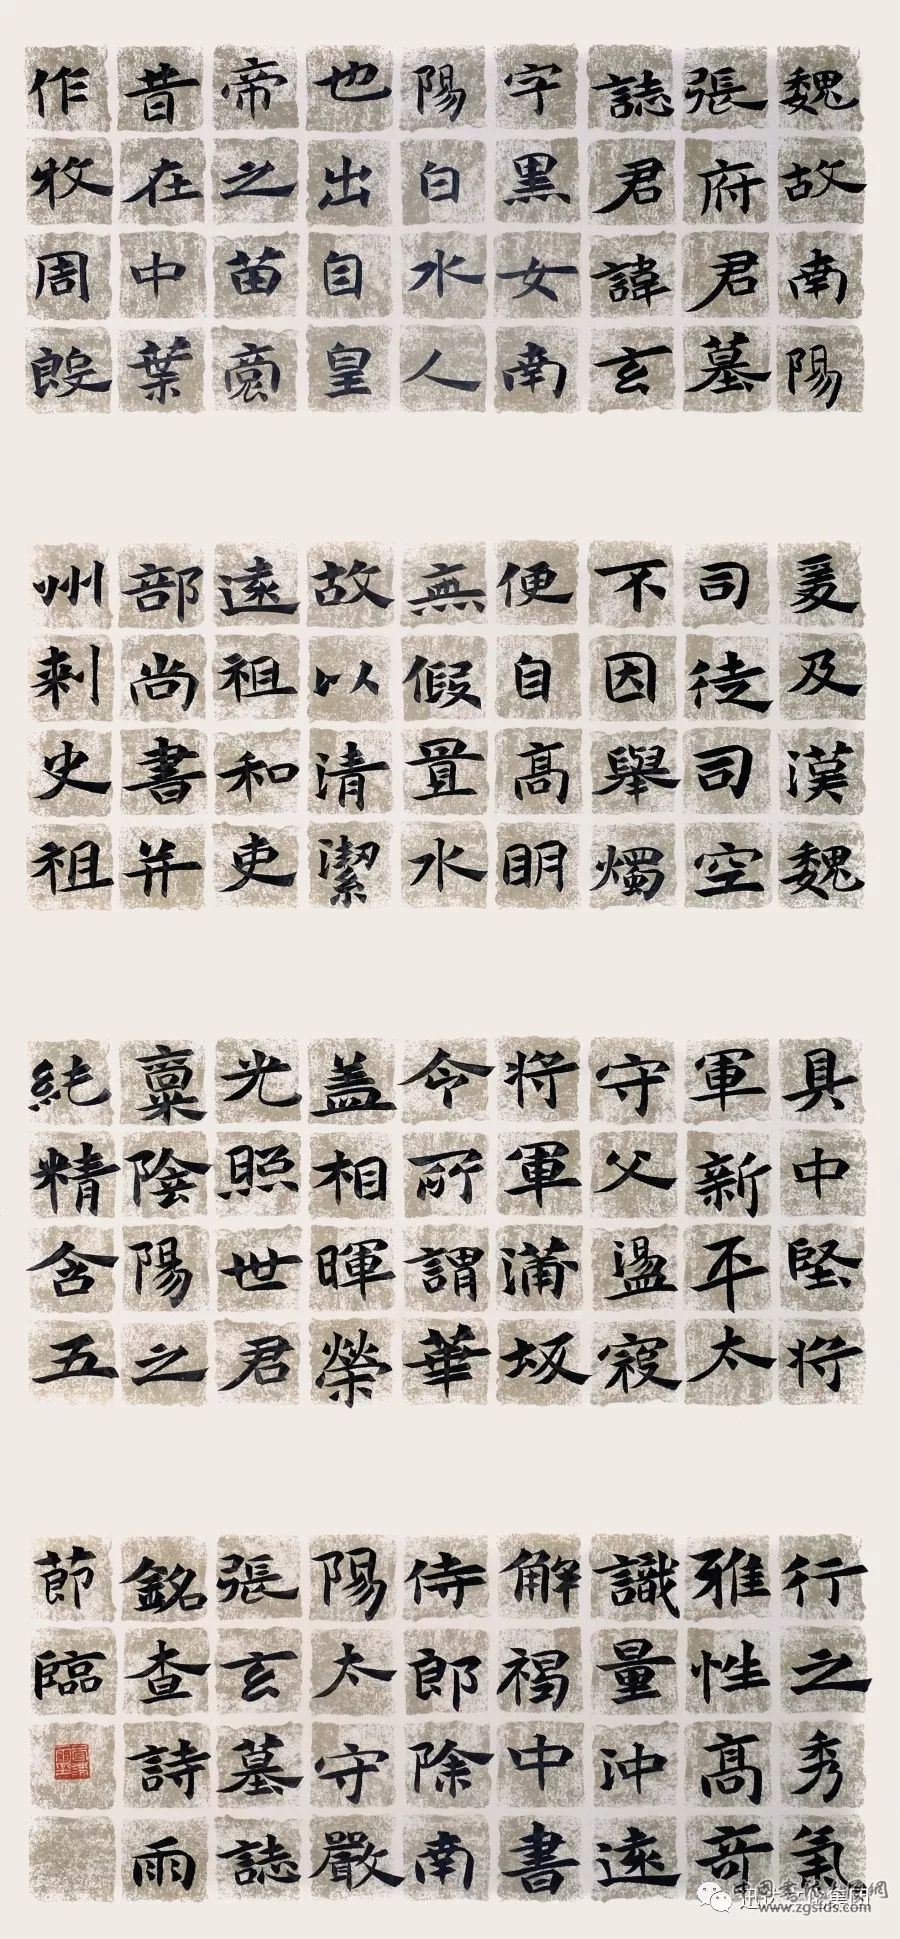 魏故南陽
張府君墓
誌君諱玄
字黑女南
陽白水人
也出自皇
帝之苗裔
昔在中葉
作牧周殷
爰及漢魏
司徒司空
不因舉燭
便自高明
無假置水
故以清潔
遠祖和吏
部尚書并
州刺史祖
具中堅將
軍新平太
守父盪寇
將軍蒲坂
令所謂華
盖相暉榮
光照世君
稟陰陽之
純精含五
行之秀氣
雅性高奇
識量沖遠
解褐中書
侍郎除南
陽太守嚴
張玄墓誌
銘查詩雨
節臨
www.zgsfds.com